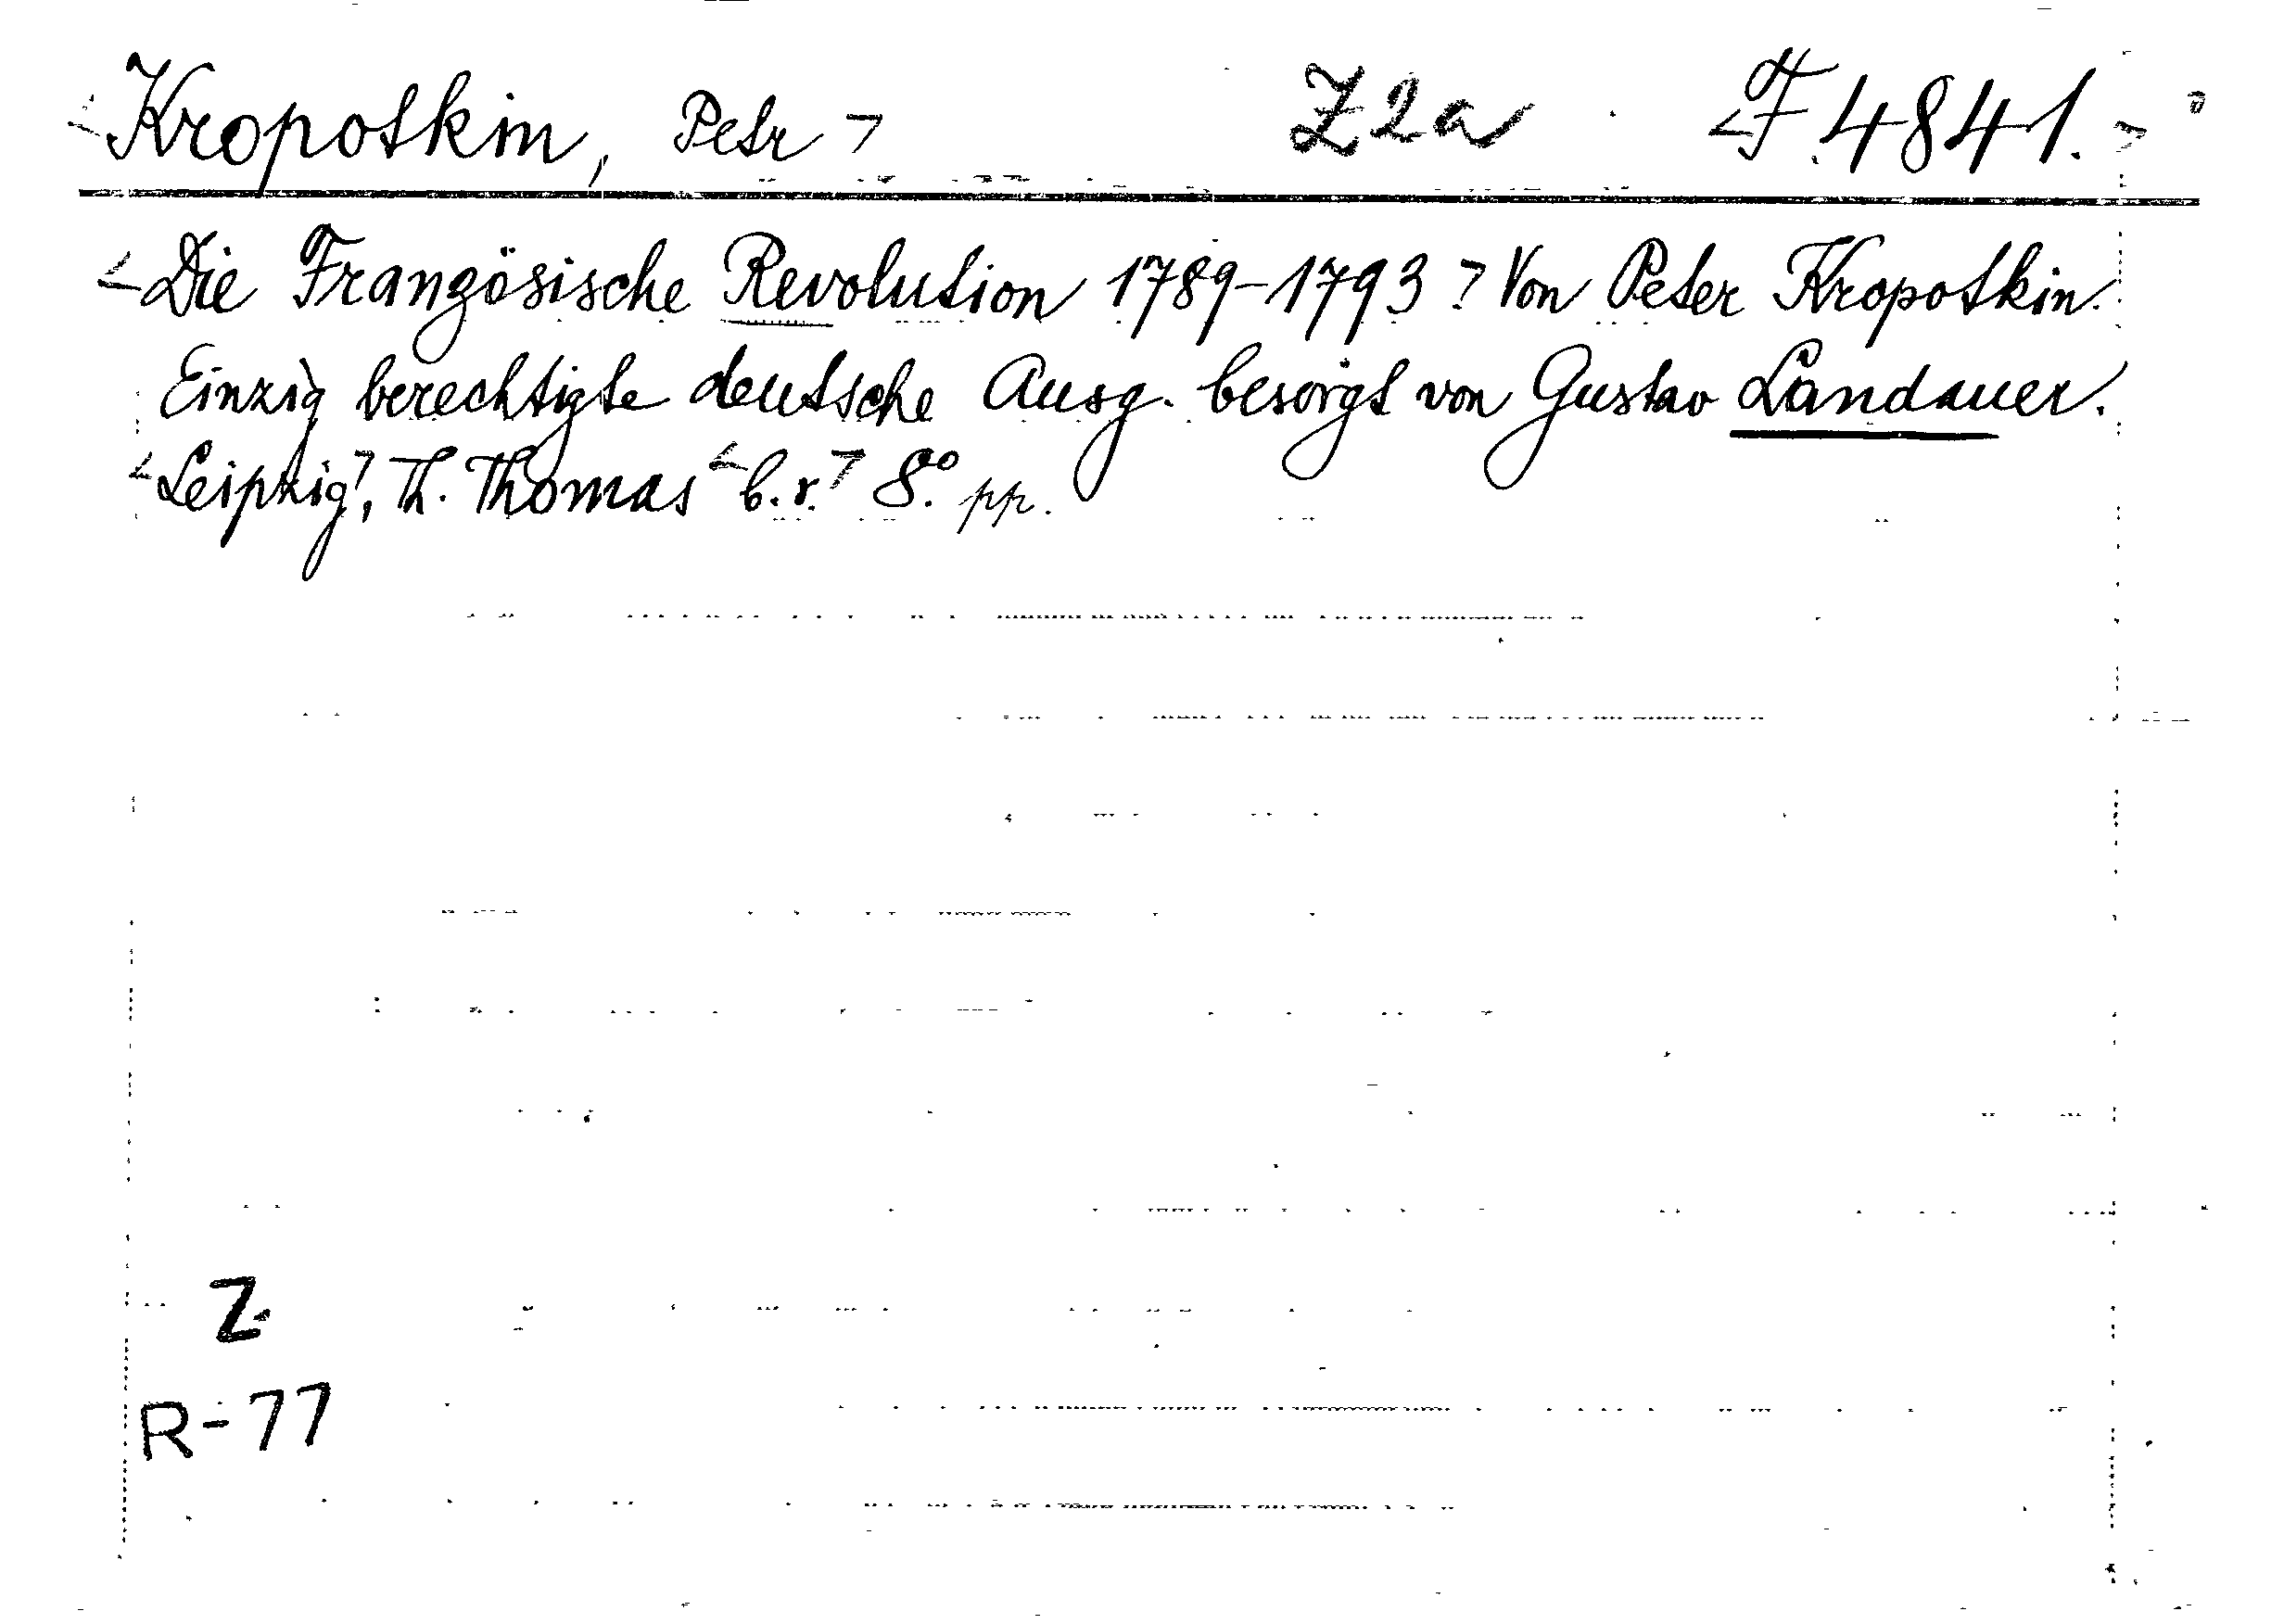 <Kropotkin, Petr> Z2a <F.4841.>
<Die Französische Revolution 1789-1793> Von Peter Kropotkin.
Einzig berechtigte deutsche Ausg. besorgt von Gustav Landauer.
<Leipzig>, Th. Thomas <b.r.> 8.° pp.
Z
R-77